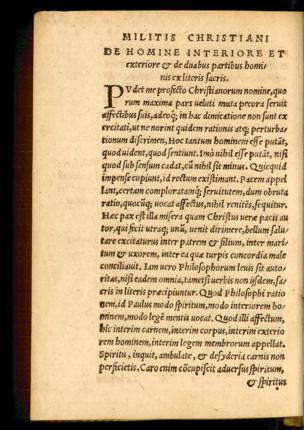 MILITIS CHRISTIANI
DE HOMINE INTERIORE ET
exteriore & de duabus partibus homi⸗
nis ex literis sacris.
PVdet me profecto Christianorum nomine, quo
rum maxima pars ueluti muta pecora seruit
affectibus suis, adeoq; in hac dimicatione non sunt ex
ercitati, ut ne norint quidem rationis atq; perturba⸗
tionum discrimen. Hoc tantum hominem esse putāt,
quod uident, quod sentiunt. Imò nihil esse putāt, nisi
quod sub sensum cadat, cū nihil sit minus. Quicquid
impense cupiunt, id rectum existimant. Pacem appel
lant, certam comploratamq; seruitutem, dum obruta
ratio, quocūq; uocat affectus, nihil renitēs, sequitur.
Hæc pax est illa misera quam Christus ueræ pacis au
tor, qui ficit utraq; unū, uenit dirimere, bellum salu⸗
tare excitaturus inter patrem & filium, inter mari⸗
tum & uxorem, inter ea quæ turpis concordia male
conciliauit. Iam uero Philosophorum leuis sit auto⸗
ritas, nisi eadem omnia, tametsi uerbis non ijsdem, sa⸗
cris in literis præcipiuntur. Quod Philosophi ratio
nem, id Paulus modo spiritum, modo interiorem ho⸗
minem, modo legē mentis uocat. Quod illi affectum,
hic interim carnem, interim corpus, interim exterio
rem hominem, interim legem membrorum appellat.
Spiritu, inquit, ambulate, & desyderia carnis non
perficietis. Caro enim cōcupiscit aduersus spiritum,
& spiritus